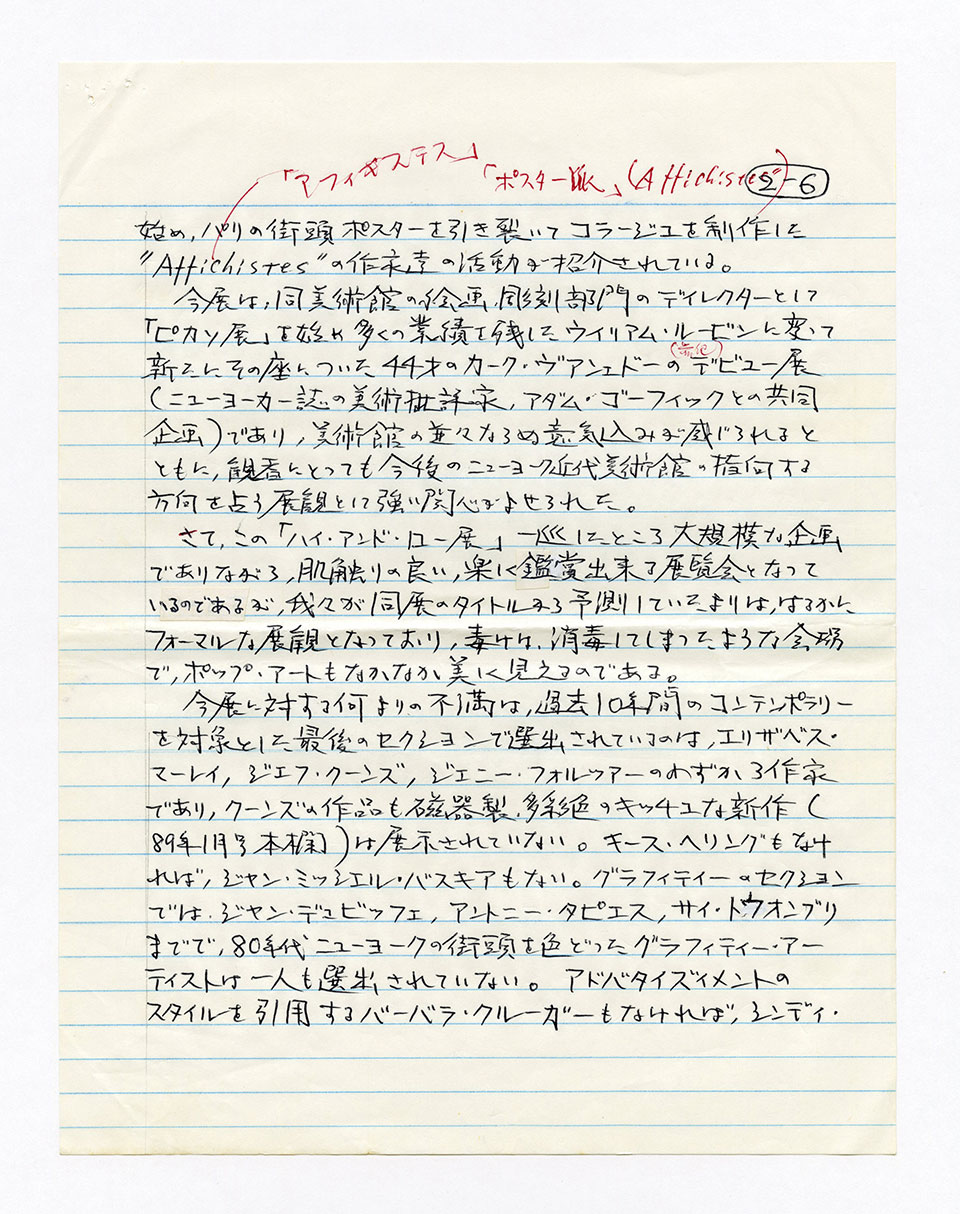 「アフィキステス」
「ポスター派」(Affichistes)
2-6
始め、パリの街頭ポスターを引き裂いてコラージュを制作した
"Affichistes"の作家達の活動が紹介されている。
今展は、同美術館の絵画、彫刻部門のディレクターとして
「ピカソ展」を始め多くの業績を残したウイリアム・ルービンに変って
新たにその座についた44才のカーク・ヴァンェドーのデビュー展
(ニューヨーカー誌の美術批評家、アダム・ゴーフィックとの共同
企画)であり、美術館の並々ならぬ意気込みが感じられると
ともに、観者にとっても今後のニューヨーク近代美術館の指向する
方向を占う展観として強い関心がよせられた。
さて、この「ハイ・アンド・ロー展」一巡したところ大規模な企画
でありながら、肌触りの良い、楽しく鑑賞出来る展覧会となって
いるのであるが、我々が同展のタイトルから予測していたよりは、はるかに
フォーマルな展観となっており、毒けは、消毒してしまったような会場
で、ポップ・アートもなかなか美しく見えるのである。
今展に対する何よりの不満は、過去10年間のコンテンポラリー
を対象とした最後のセクションで選出されているのは、エリザベス・
マーレイ、ジエフ・クーンズ、ジェニー・フォルツァーのわずか3作家
であり、クーンズの作品も磁器製、多彩色のキッチュな新作(
89年1月号本欄)は展示されていない。キース・ヘリングもなけ
れば、ジャン・ミッシェル・バスキアもない。グラフィティーのセクション
では、ジャン・デュビッフェ、アントニー・タピエス、サイ・トウオンブリ
までで、80年代ニューヨークの街頭を色どったグラフィティー・アー
ティストは一人も選出されていない。アドバタイズイメントの
スタイルを引用するバーバラ・クルーガーもなければ、シンディ・